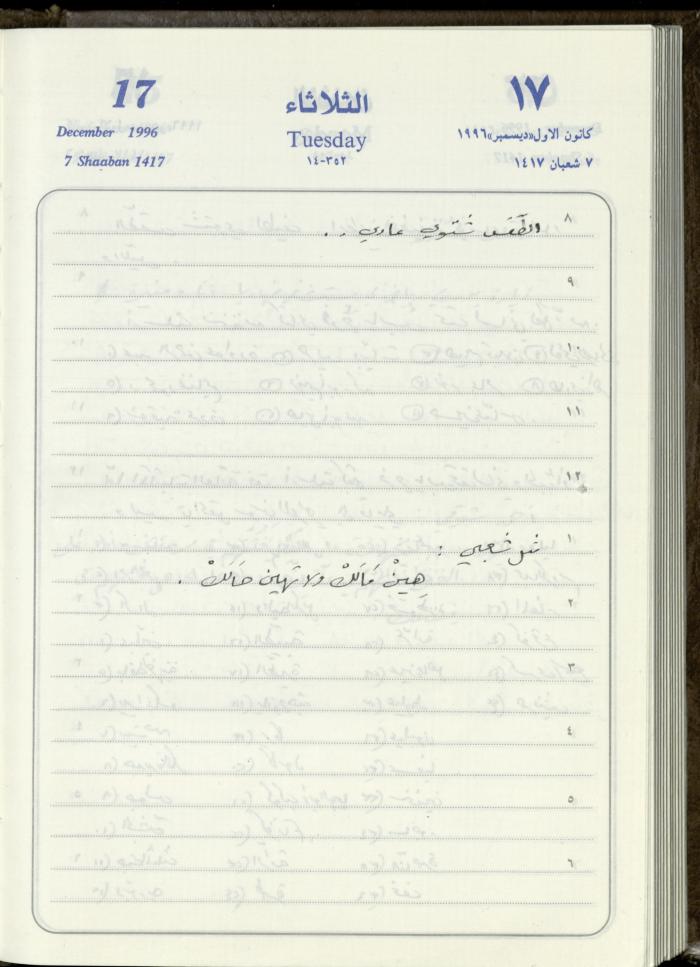 17 الثلاثاء ١٧
December 1996 Tuesday كانون الاول«ديسمبر»١٩٩٦
7 Shaaban 1417 ١٤-٣٥٢ ٧ شعبان ١٤١٧
٨
الطقس شتوي عادي . .
٩
١١
١٢
١
مثل شعبي :
هِينْ مَالَكْ ولا تهين حَالَكْ .
٢
٣
٤
٥
٦